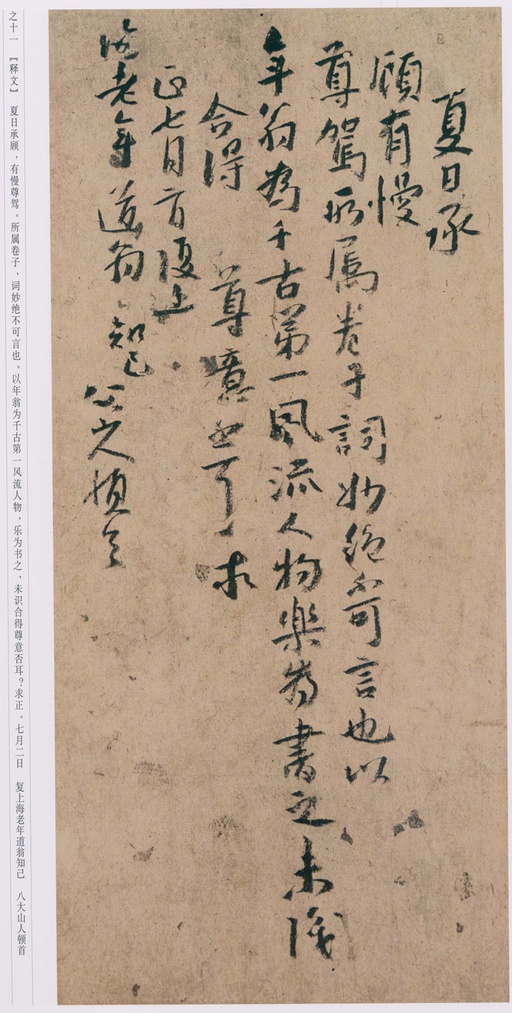 夏日承
顾有慢
尊駕所属卷子詞妙絶不可言也以
年翁為千古第一風流人物樂為書之未識
合得 尊意否耳求
正七月二日復上
海老年道翁知己 八大山人頓首
之十一 【释文】 夏日承顾，有慢尊驾。所属卷子，词妙绝不可言也。以年翁为千古第一风流人物，乐为书之，未识合得尊意否耳？求正。七月二日 复上海老年道翁知己 八大山人顿首